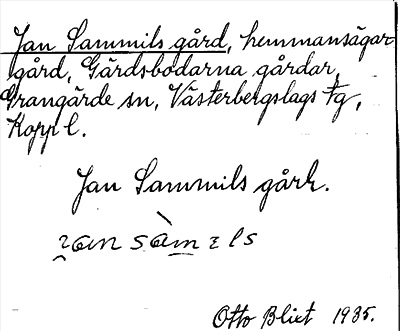 Jan Sammils gård, hemmansägar
gård, Gärdsbodarna gårdar,
Grangärde sn, Västerbergslags tg,
Kopp l.
Jan Sammils gård.
Otto Blixt 1935.